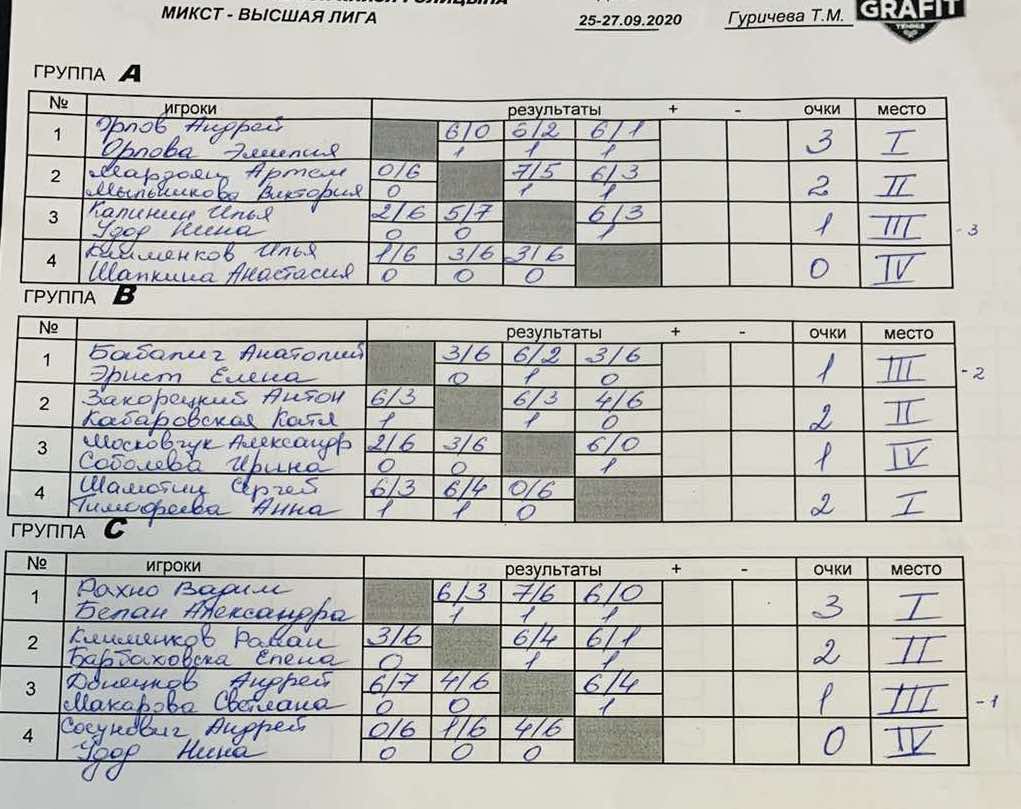 МИКСТ - ВЫСШАЯ ЛИГА
25-27.09.2020
Гуричева Т.М.
GRAFIT
TENNIS
ГРУППА A
№ игроки результаты + - очки место
1 Орлов Андрей 6/0 6/2 6/1 3 I
Орлова Эмилия 1 1 1
2 Мардоян Артем 0/6 7/5 6/3 2 II
Мыльникова Виктория 0 1 1
3 Калинин Илья 2/6 5/7 6/3 1 III - 3
Удод Нина 0 0 1
4 Клименков Илья 1/6 3/6 3/6 0 IV
Шапкина Анастасия 0 0 0
ГРУППА B
№ результаты + - очки место
1 Бабалич Анатолий 3/6 6/2 3/6 1 III - 2
Эрнст Елена 0 1 0
2 Закорецкий Антон 6/3 6/3 4/6 2 II
Кабаровская Катя 1 1 0
3 Московчук Александр 2/6 3/6 6/0 1 IV
Соболева Ирина 0 0 1
4 Шамотин Сергей 6/3 6/4 0/6 2 I
Тимофеева Анна 1 1 0
ГРУППА C
№ игроки результаты + - очки место
1 Рахно Вадим 6/3 7/6 6/0 3 I
Белан Александра 1 1 1
2 Клименков Роман 3/6 6/4 6/1 2 II
Барбаховска Елена 0 1 1
3 Донецков Андрей 6/7 4/6 6/4 1 III - 1
Макарова Светлана 0 0 1
4 Сосунович Андрей 0/6 1/6 4/6 0 IV
Удод Нина 0 0 0